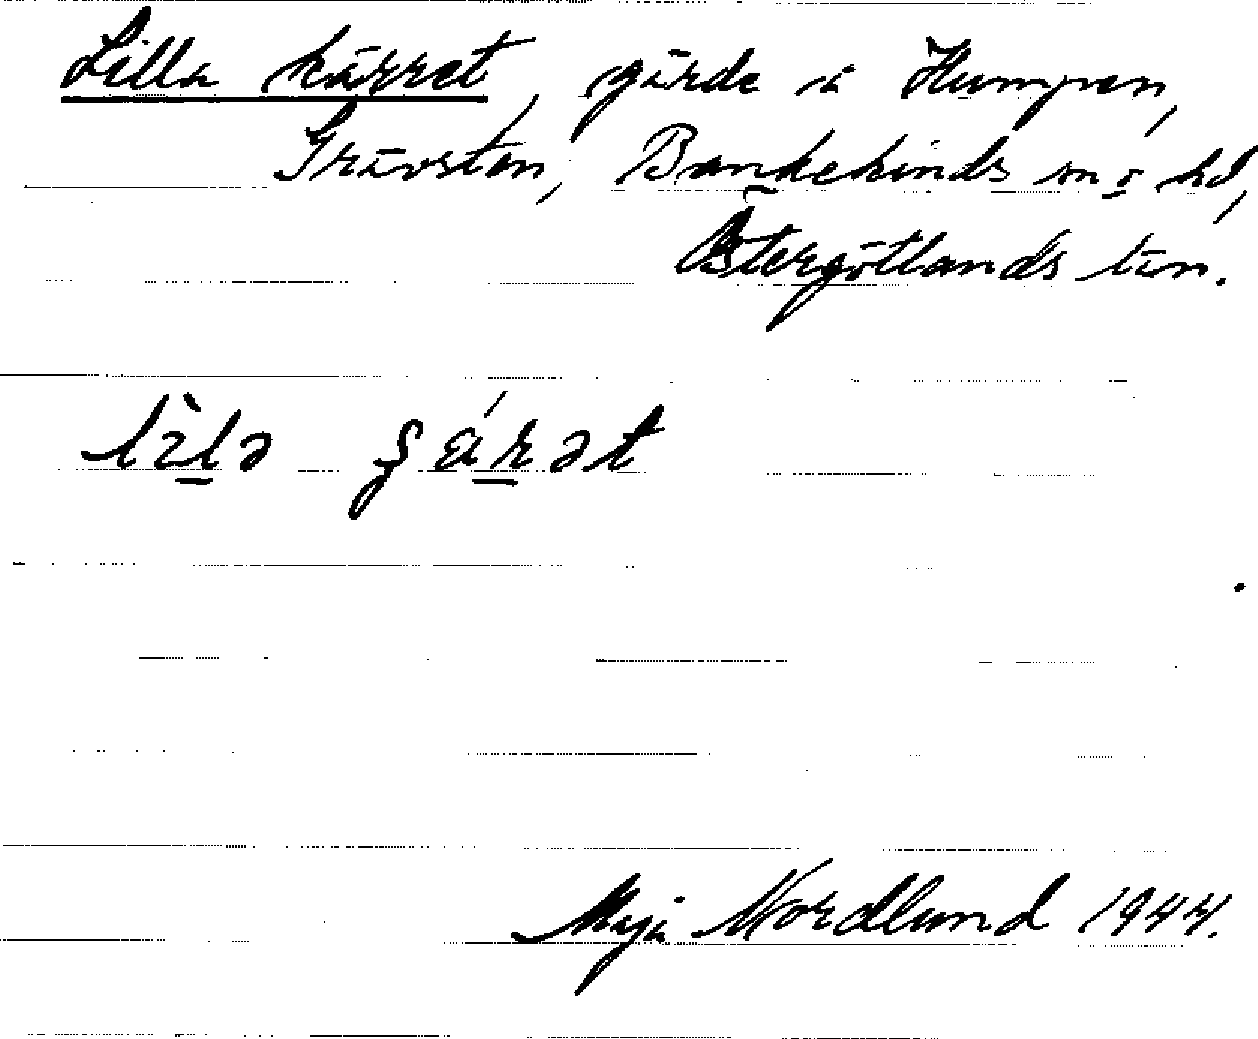 Lilla kärret, gärde i Humpen,
Grävsten, Bankekinds sn o hd,
Östergötlands län.
lìlə ʂárət
Maja Nordlund 1944.